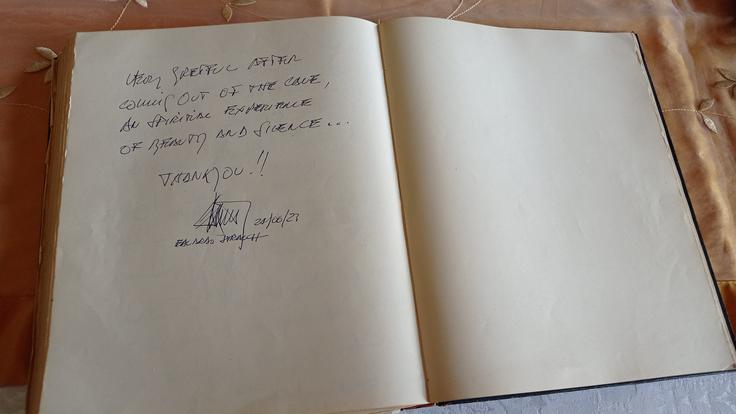 VERY GREFUL AFTER
COMING OUT OF THE CAVE,
AN SPIRITUAL EXPERIENCE
OF BEAUTY AND SILENCE...
THANK YOU!!
EDUARDO